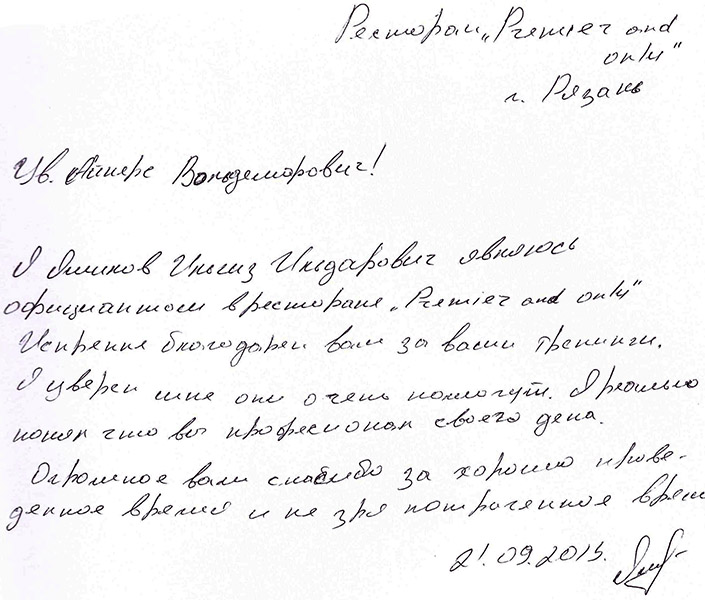 Ресторан „Premier and
only"
г. Рязань
Ув. Айнере Вольдеморович!
Я Яликов Ильгиз Ильдарович являюсь
официантом в ресторане „Premier and only"
Искренне благодарен вам за ваши тренинги.
Я уверен мне они очень помогут. Я реально
понял что вы професионал своего дела.
Огромное вам спасибо за хорошо прове-
денное время и не зря потраченное врем
21.09.2015.